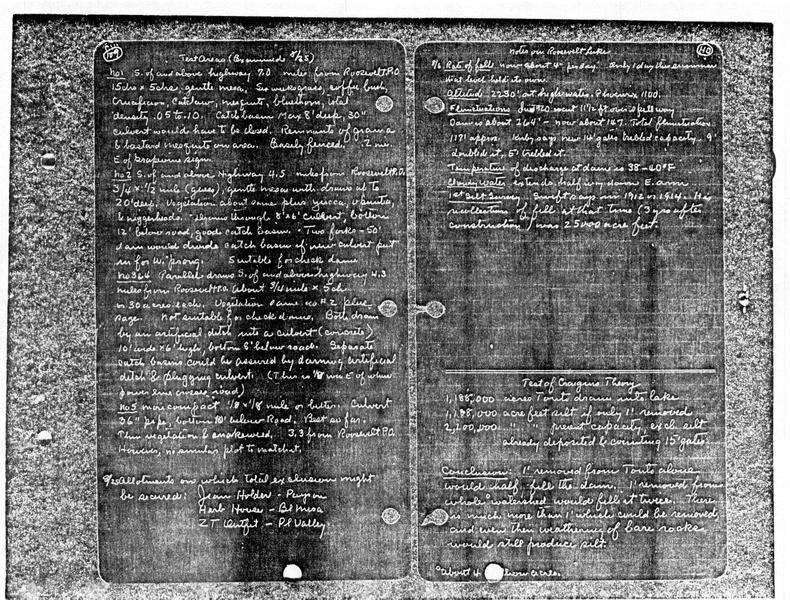 139
Test Areas (Examined 5/25)
No1 S. of and above highway 7.0 miles from Roosevelt P.O.
15chs x 5chs, gentle mesa, Six weeks grass, coffee bush,
Crucifixion, Catclaw, mesquite, bluethorn, total
density .05 to .10. Catch basin Max 8' deep, 30"
culvert would have to be closed. Remnants of grama
& bastard mesquite on area. Easily fenced. .2 mi.
E of Grapevine sign
No2 S. of and above Highway 4.5 miles from Roosevelt P.O.
3/4 x 1/2 mile (guess), gentle mesa with draws up to
20' deep. Vegetation about same plus yucca, opuntia,
& niggerheads. Drains through 8'x6' culvert, bottom
12' below road, good catch basin. Two forks - 50
dam would divide catch basin if new culvert put
in for W. prong. Suitable for check dams
No3&4 Parallel draws S. of and above highway 4.3
miles from Roosevelt P.O. about 3/4 mile x 5chs
or 30 acres each. Vegetation same as #2 plus
sage. Not suitable for check dams. Both drain
by an artificial ditch into a culvert (concrete)
10' wide x 6' high, bottom 8' below road. Separate
catch basins could be assured by damming artificial
ditch & plugging culvert. (This is 1/8 mi E of where
power line crosses road)
No5 more compact 1/8 x 1/8 mile or better. Culvert
36" pipe, bottom 10' below Road. Best so far.
Thin vegetation & snakeweed. 3.3 from Roosevelt P.O.
However, no similar plot to match it.
Allotments on which total exclusion might
be secured: Jean Holder - Payson
Herb House - Bl Mesa
ZT Outfit - Pl Valley
140
Notes on Roosevelt Lake
Rate of fall now about 4" per day. Only 1 day this summer
that level held its own.
Altitud 2230' at high water. Phoenix 1100.
Fluctuations over spillway
Dam is about 264' - now about 147. Total fluctuation
117' approx. new 14' gates trebled capacity - 9'
doubled it, 5' trebled it.
Temperature of discharge at dam is 38-40°F
Cloudy water extends half way down E. arm
1st Silt Survey Swift says in 1912 or 1914. His
recollection of fill at that time (3 yrs after
construction) was 25000 acre feet.
Test of Craigins Theory
1,188,000 acres Tonto drain into lake
1,188,000 acre feet silt if only 1' removed
2,200,000 " " present capacity excl. silt
already deposited & counting 15' gates.
Conclusion: 1' removed from Tonto alone
would half fill the dam. 1' removed from
whole° watershed would fill it twice. There
is much more than 1' which could be removed
and even then weathering of bare rocks
would still produce silt.
°About 4 acres.